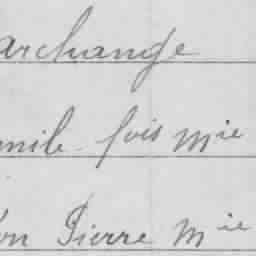 archange
mile fois Mie
on Pierre Mie